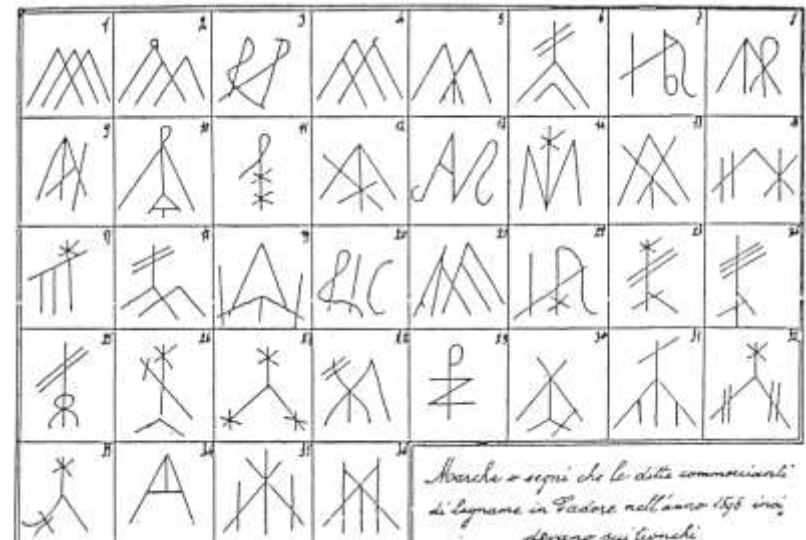 1 2 3 4 5 6 7 8
9 10 11 12 13 14 15 16
17 18 19 20 21 22 23 24
25 26 27 28 29 30 31 32
33 34 35 36
Marche e segni che le ditte commercianti
di legname in Cadore nell'anno 1896 inci
devano sui tronchi